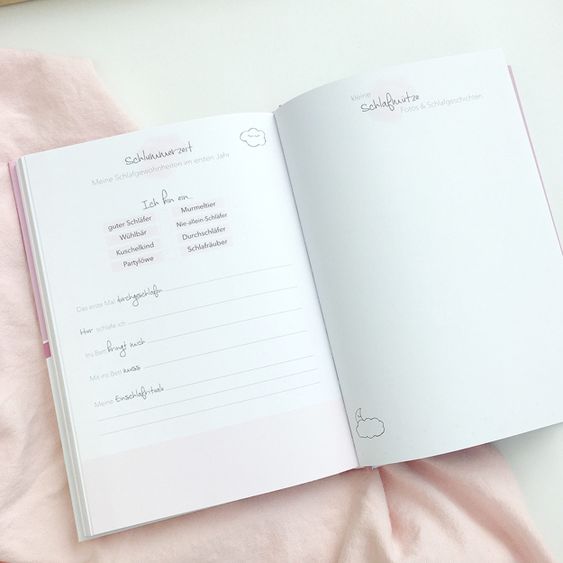 Schlummerzeit
Meine Schlafgewohnheiten im ersten Jahr
Ich bin ein...
guter Schläfer
Wühlbär
Kuschelkind
Partylöwe
Murmeltier
Nie-allein-Schläfer
Durchschläfer
Schlafräuber
Das erste Mal durchgeschlafen
Hier schlafe ich
Ins Bett bringt mich
Mit ins Bett muss
Meine Einschlafrituale
kleine
Schlafmütze
Fotos & Schlafgeschichten